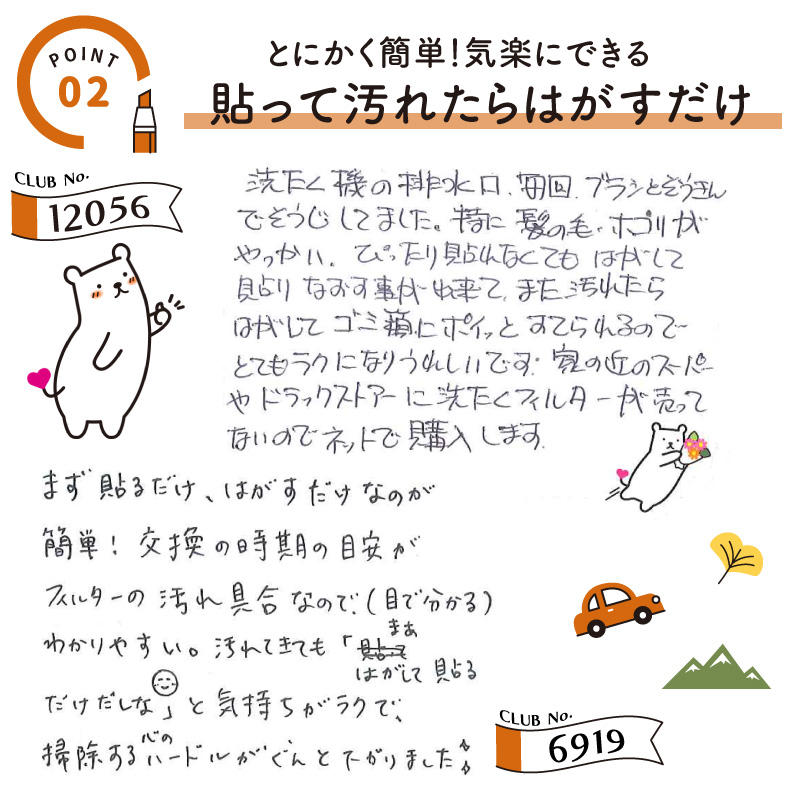 POINT
02
とにかく簡単！気楽にできる
貼って汚れたらはがすだけ
CLUB No.
12056
洗たく機の排水口、毎回、ブラシとぞうきん
でそうじしてました。特に髪の毛・ホコリが
やっかい、ぴったり貼れなくてもはがして
貼りなおす事が出来て、また汚れたら
はがしてゴミ箱にポイッとすてられるので
とてもラクになりうれしいです。家の近のスーパー
やドラックストアーに洗たくフィルターが売って
ないのでネットで購入します。
まず貼るだけ、はがすだけなのが
簡単！交換の時期の目安が
フィルターの汚れ具合なので、(目で分かる)
わかりやすい。汚れてきても「まあ
はがして貼る
だけだしな」と気持ちがラクで、
掃除する心のハードルがぐんと下がりました
CLUB No.
6919